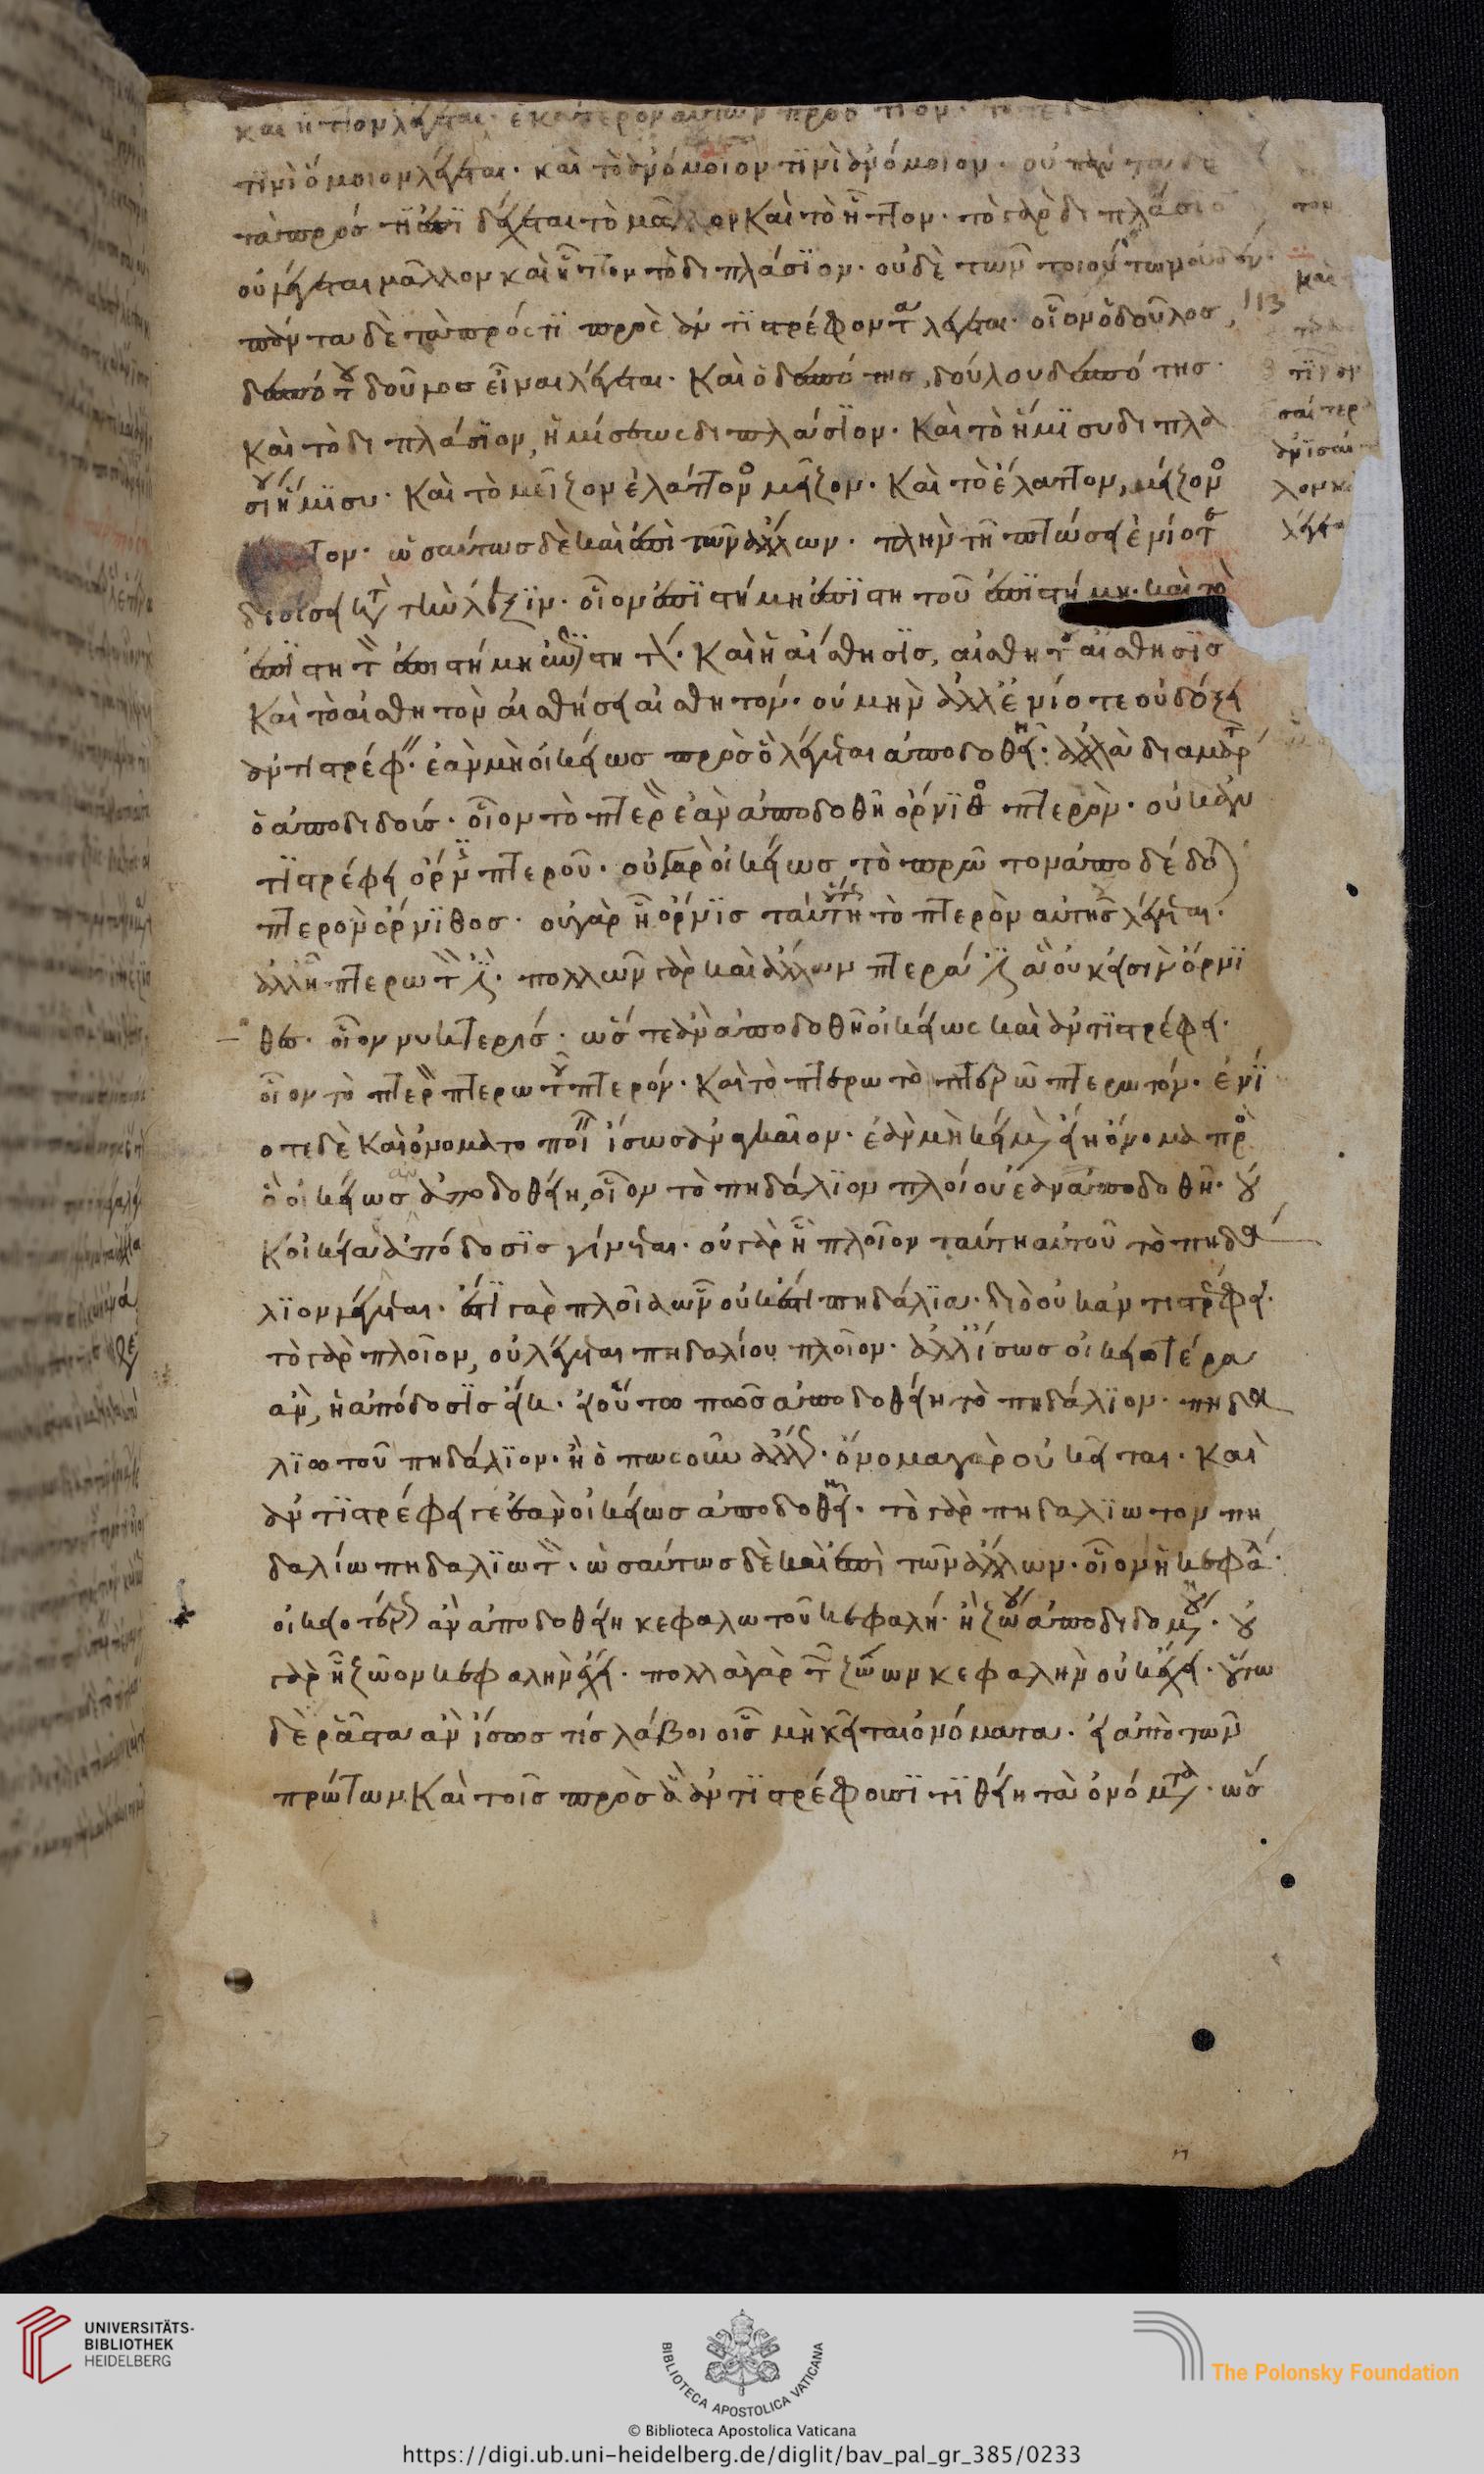 και ἧττον λέγεται· ἑκάτερον αὐτῶν πρός τι ὄν· τό τε
τινὶ ὅμοιον λέγεται· καὶ τὸ ἀνόμοιον τινὶ ἀνόμοιον· οὐ πάντα δὲ
τὰ πρός τι ἐπιδέχεται τὸ μᾶλλον καὶ τὸ ἧττον· τὸ γὰρ διπλάσιον
οὐ λέγεται μᾶλλον καὶ ἧττον τὸ διπλάσιον· οὐδὲ τῶν τοιούτων οὐδέν·
πάντα δὲ τὰ πρός τι πρὸς ἀντιστρέφοντα λέγεται· οἷον ὁ δοῦλος, 113
δεσπότου δοῦλος εἶναι λέγεται· καὶ ὁ δεσπότης, δούλου δεσπότης·
καὶ τὸ διπλάσιον, ἡμίσεως διπλάσιον· καὶ τὸ ἥμισυ διπλα
σίου ἥμισυ· καὶ τὸ μεῖζον ἐλάττονος μεῖζον· καὶ τὸ ἔλαττον, μείζονος
ἔλαττον· ὡσαύτως δὲ καὶ ἐπὶ τῶν ἄλλων· πλὴν τῇ πτώσει ἐνίοτε
διοίσει κατὰ τὴν λέξιν· οἷον ἐπιστήμη ἐπιστητοῦ ἐπιστήμη· καὶ τὸ
ἐπιστητὸν ἐπιστήμη ἐπιστητόν· καὶ ἡ αἴσθησις, αἰσθητοῦ αἴσθησις
καὶ τὸ αἰσθητὸν αἰσθήσει αἰσθητόν· οὐ μὴν ἀλλ' ἐνίοτε οὐ δόξει
ἀντιστρέφειν· ἐὰν μὴ οἰκείως πρὸς ὃ λέγεται ἀποδοθῇ· ἀλλὰ διαμάρτῃ
ὁ ἀποδιδούς· οἷον τὸ πτερὸν ἐὰν ἀποδοθῇ ὄρνιθος πτερὸν· οὐκ ἀν
τιστρέφει ὄρνις πτεροῦ· οὐ γὰρ οἰκείως τὸ πρῶτον ἀποδέδοται
πτερὸν ὄρνιθος· οὐ γὰρ ᾗ ὄρνις ταύτῃ τὸ πτερὸν αὐτῆς λέγεται·
ἀλλ' ᾗ πτερωτόν ἐστι· πολλῶν γὰρ καὶ ἄλλων πτερά ἐστιν ἃ οὐκ εἰσὶν ὄρνι
θες· οἷον νυκτερίς· ὥστε ἀν ἀποδοθῇ οἰκείως καὶ ἀντιστρέφει·
οἷον τὸ πτερὸν πτερωτοῦ πτερόν· καὶ τὸ πτερωτὸν πτερῷ πτερωτόν· ἐνί
οτε δὲ καὶ ὀνοματοποιεῖν ἴσως ἀναγκαῖον· ἐὰν μὴ κείμενον εἴη ὄνομα πρὸς
ὃ οἰκείως ἂν ἀποδοθείη, οἷον τὸ πηδάλιον πλοίου ἐὰν ἀποδοθῇ· οὐ
κ οἰκεία ἀπόδοσις γίνεται· οὐ γὰρ ᾗ πλοῖον ταύτῃ αὐτοῦ τὸ πηδά
λιον λέγεται· ἔστι γὰρ πλοῖα ὧν οὐκ ἔστι πηδάλια· διὸ οὐκ ἀντιστρέφει·
τὸ γὰρ πλοῖον, οὐ λέγεται πηδαλίου πλοῖον· ἀλλ' ἴσως οἰκειοτέρα
ἂν, ἡ ἀπόδοσις εἴη· εἰ οὕτω πως ἀποδοθείη τὸ πηδάλιον· πηδα
λιωτοῦ πηδάλιον· ἢ ὁπωσοῦν ἄλλως· ὄνομα γὰρ οὐ κεῖται· καὶ
ἀντιστρέφει γε ἐὰν οἰκείως ἀποδοθῇ· τὸ γὰρ πηδαλιωτὸν πη
δαλίω πηδαλιωτόν· ὡσαύτως δὲ καὶ ἐπὶ τῶν ἄλλων· οἷον ἡ κεφαλὴ
οἰκειοτέρως ἂν ἀποδοθείη κεφαλωτοῦ κεφαλή· ἢ ζώου ἀποδιδομένη· οὐ
γὰρ ᾗ ζῶον κεφαλὴν ἔχει· πολλὰ γὰρ τῶν ζώων κεφαλὴν οὐκ ἔχει· οὕτω
δὲ ῥᾷστα ἂν ἴσως τις λάβοι οἷς μὴ κεῖται ὀνόματα· εἰ ἀπὸ τῶν
πρώτων καὶ τοῖς πρὸς ἃ ἀντιστρέφουσι τιθείη τὰ ὀνόματα· ὥς
UNIVERSITÄTS-
BIBLIOTHEK
HEIDELBERG
BIBLIOTECA APOSTOLICA VATICANA
The Polonsky Foundation
© Biblioteca Apostolica Vaticana
https://digi.ub.uni-heidelberg.de/diglit/bav_pal_gr_385/0233